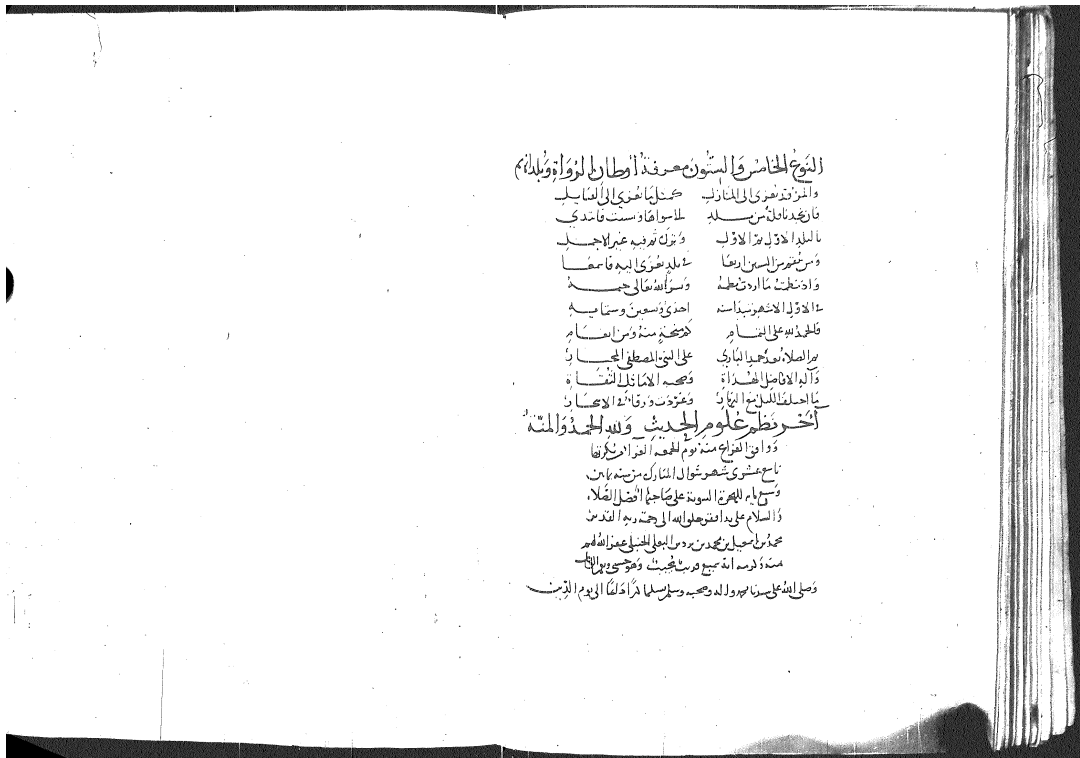 النوع الخامس والستون معرفة أوطان الرواة وبلدانهم
والمرء قد يعزى الى المنازل كمثل ما يعزى الى القبايل
فان تجد ناقلة من بلد لما سواها ونسبت فابتدي
بالبلد الاول ثم الاول وترك ثم فيه غير الاجمل
ومن يقم من السنين اربعا في بلد يعزى اليه فاسمعا
واذ نظمت ما اردت نظمه ويسر الله تعالى ختمه
في الاول الاشهر من سنه احدى وسبعين وستمايه
فالحمد لله على التمام كم منحة منه ومن انعام
ثم الصلاة بعد حمد الباري على النبي المصطفى المختار
وآله الافاضل الهداة وصحبه الاماثل الثقاة
ما اختلف الليل مع النهار وغردت ورقاء في الاسحار
آخر نظم علوم الحديث ولله الحمد والمنة
ووافق الفراغ منه يوم الجمعه بكرتها
تاسع عشرى شهر شوال المبارك من سنه ثمانين
وسبع مايه للهجرة النبوية على صاحبها افضل الصلاة
والسلام على يد افقر خلق الله الى رحمة ربه القدير
محمد بن اسمعيل بن محمد بن بردس البعلي الحنبلي عفر الله لهم
بمنه وكرمه انه سميع قريب مجيب وهو حسبي ونعم الوكيل
وصلى الله على سيدنا محمد واله وصحبه وسلم تسليما الى يوم الدين